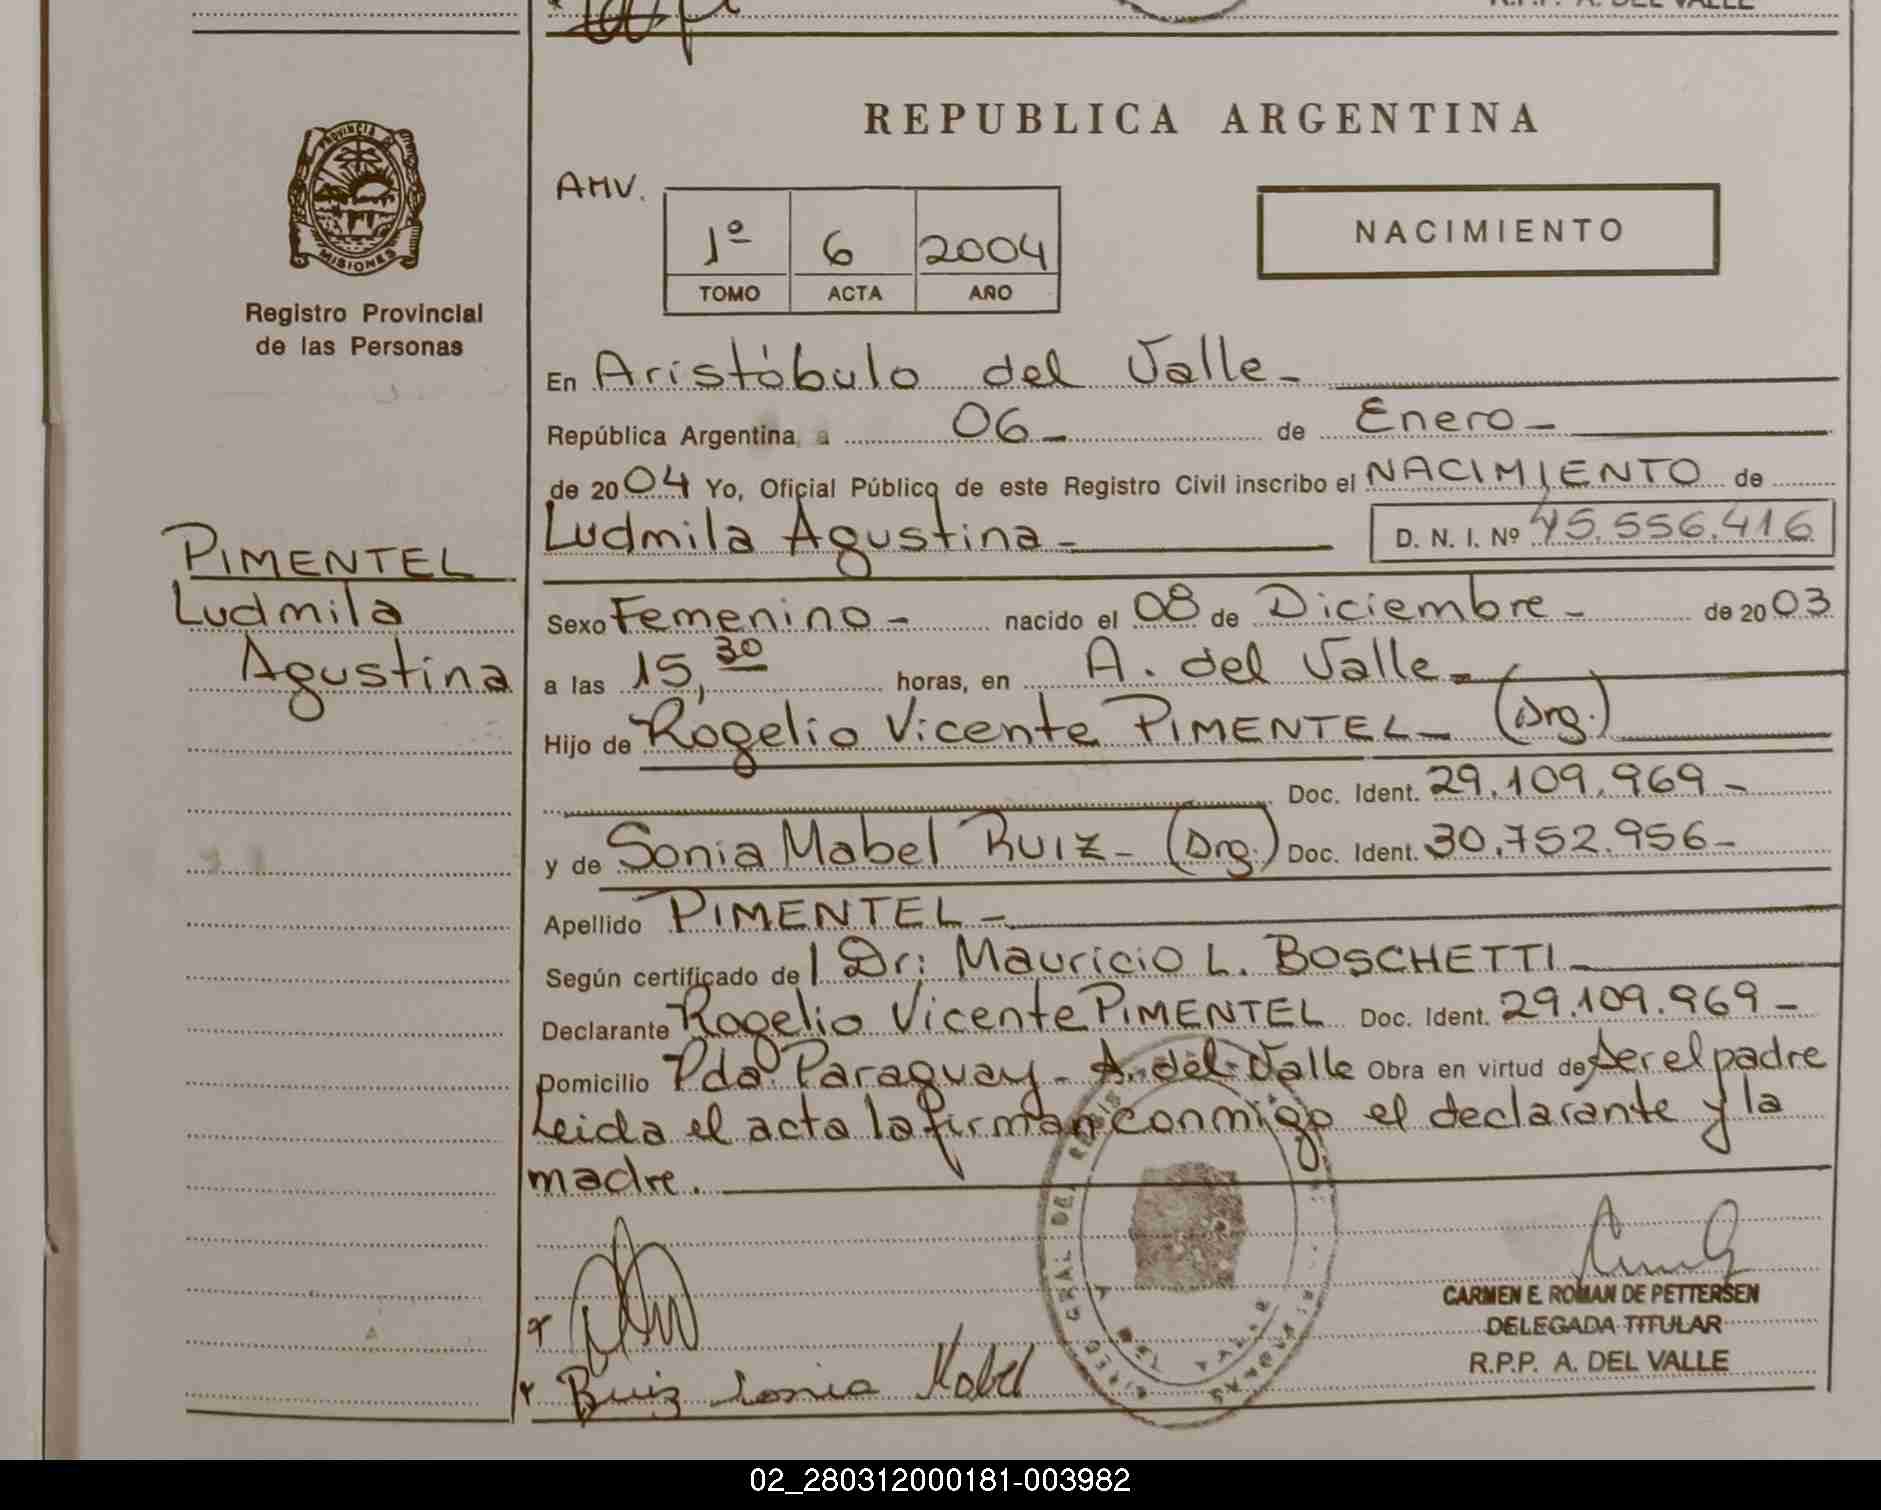 R.P.P. A. DEL VALLE
REPUBLICA ARGENTINA
PROVINCIA DE
MISIONES
Registro Provincial
de las Personas
AMV.
1º 6 2004
TOMO ACTA AÑO
NACIMIENTO
En Aristóbulo del Valle-
República Argentina, a 06- de Enero-
de 2004 Yo, Oficial Público de este Registro Civil inscribo el NACIMIENTO de
Ludmila Agustina- D. N. I. Nº 45.556.416
PIMENTEL
Ludmila
Agustina
Sexo Femenino- nacido el 08 de Diciembre- de 2003
a las 15,30 horas, en A. del Valle-
Hijo de Rogelio Vicente PIMENTEL- (Arg.)
Doc. Ident. 29.109.969-
y de Sonia Mabel RUIZ- (Arg.) Doc. Ident. 30.752.956-
Apellido PIMENTEL-
Según certificado del Dr: Mauricio L. BOSCHETTI-
Declarante Rogelio Vicente PIMENTEL Doc. Ident. 29.109.969-
Domicilio Pda. Paraguay- A. del Valle Obra en virtud de ser el padre
Leida el acta la firman conmigo el declarante y la
madre.
CARMEN E. ROMAN DE PETTERSEN
DELEGADA TITULAR
R.P.P. A. DEL VALLE
Ruiz Sonia Mabel
02_280312000181-003982